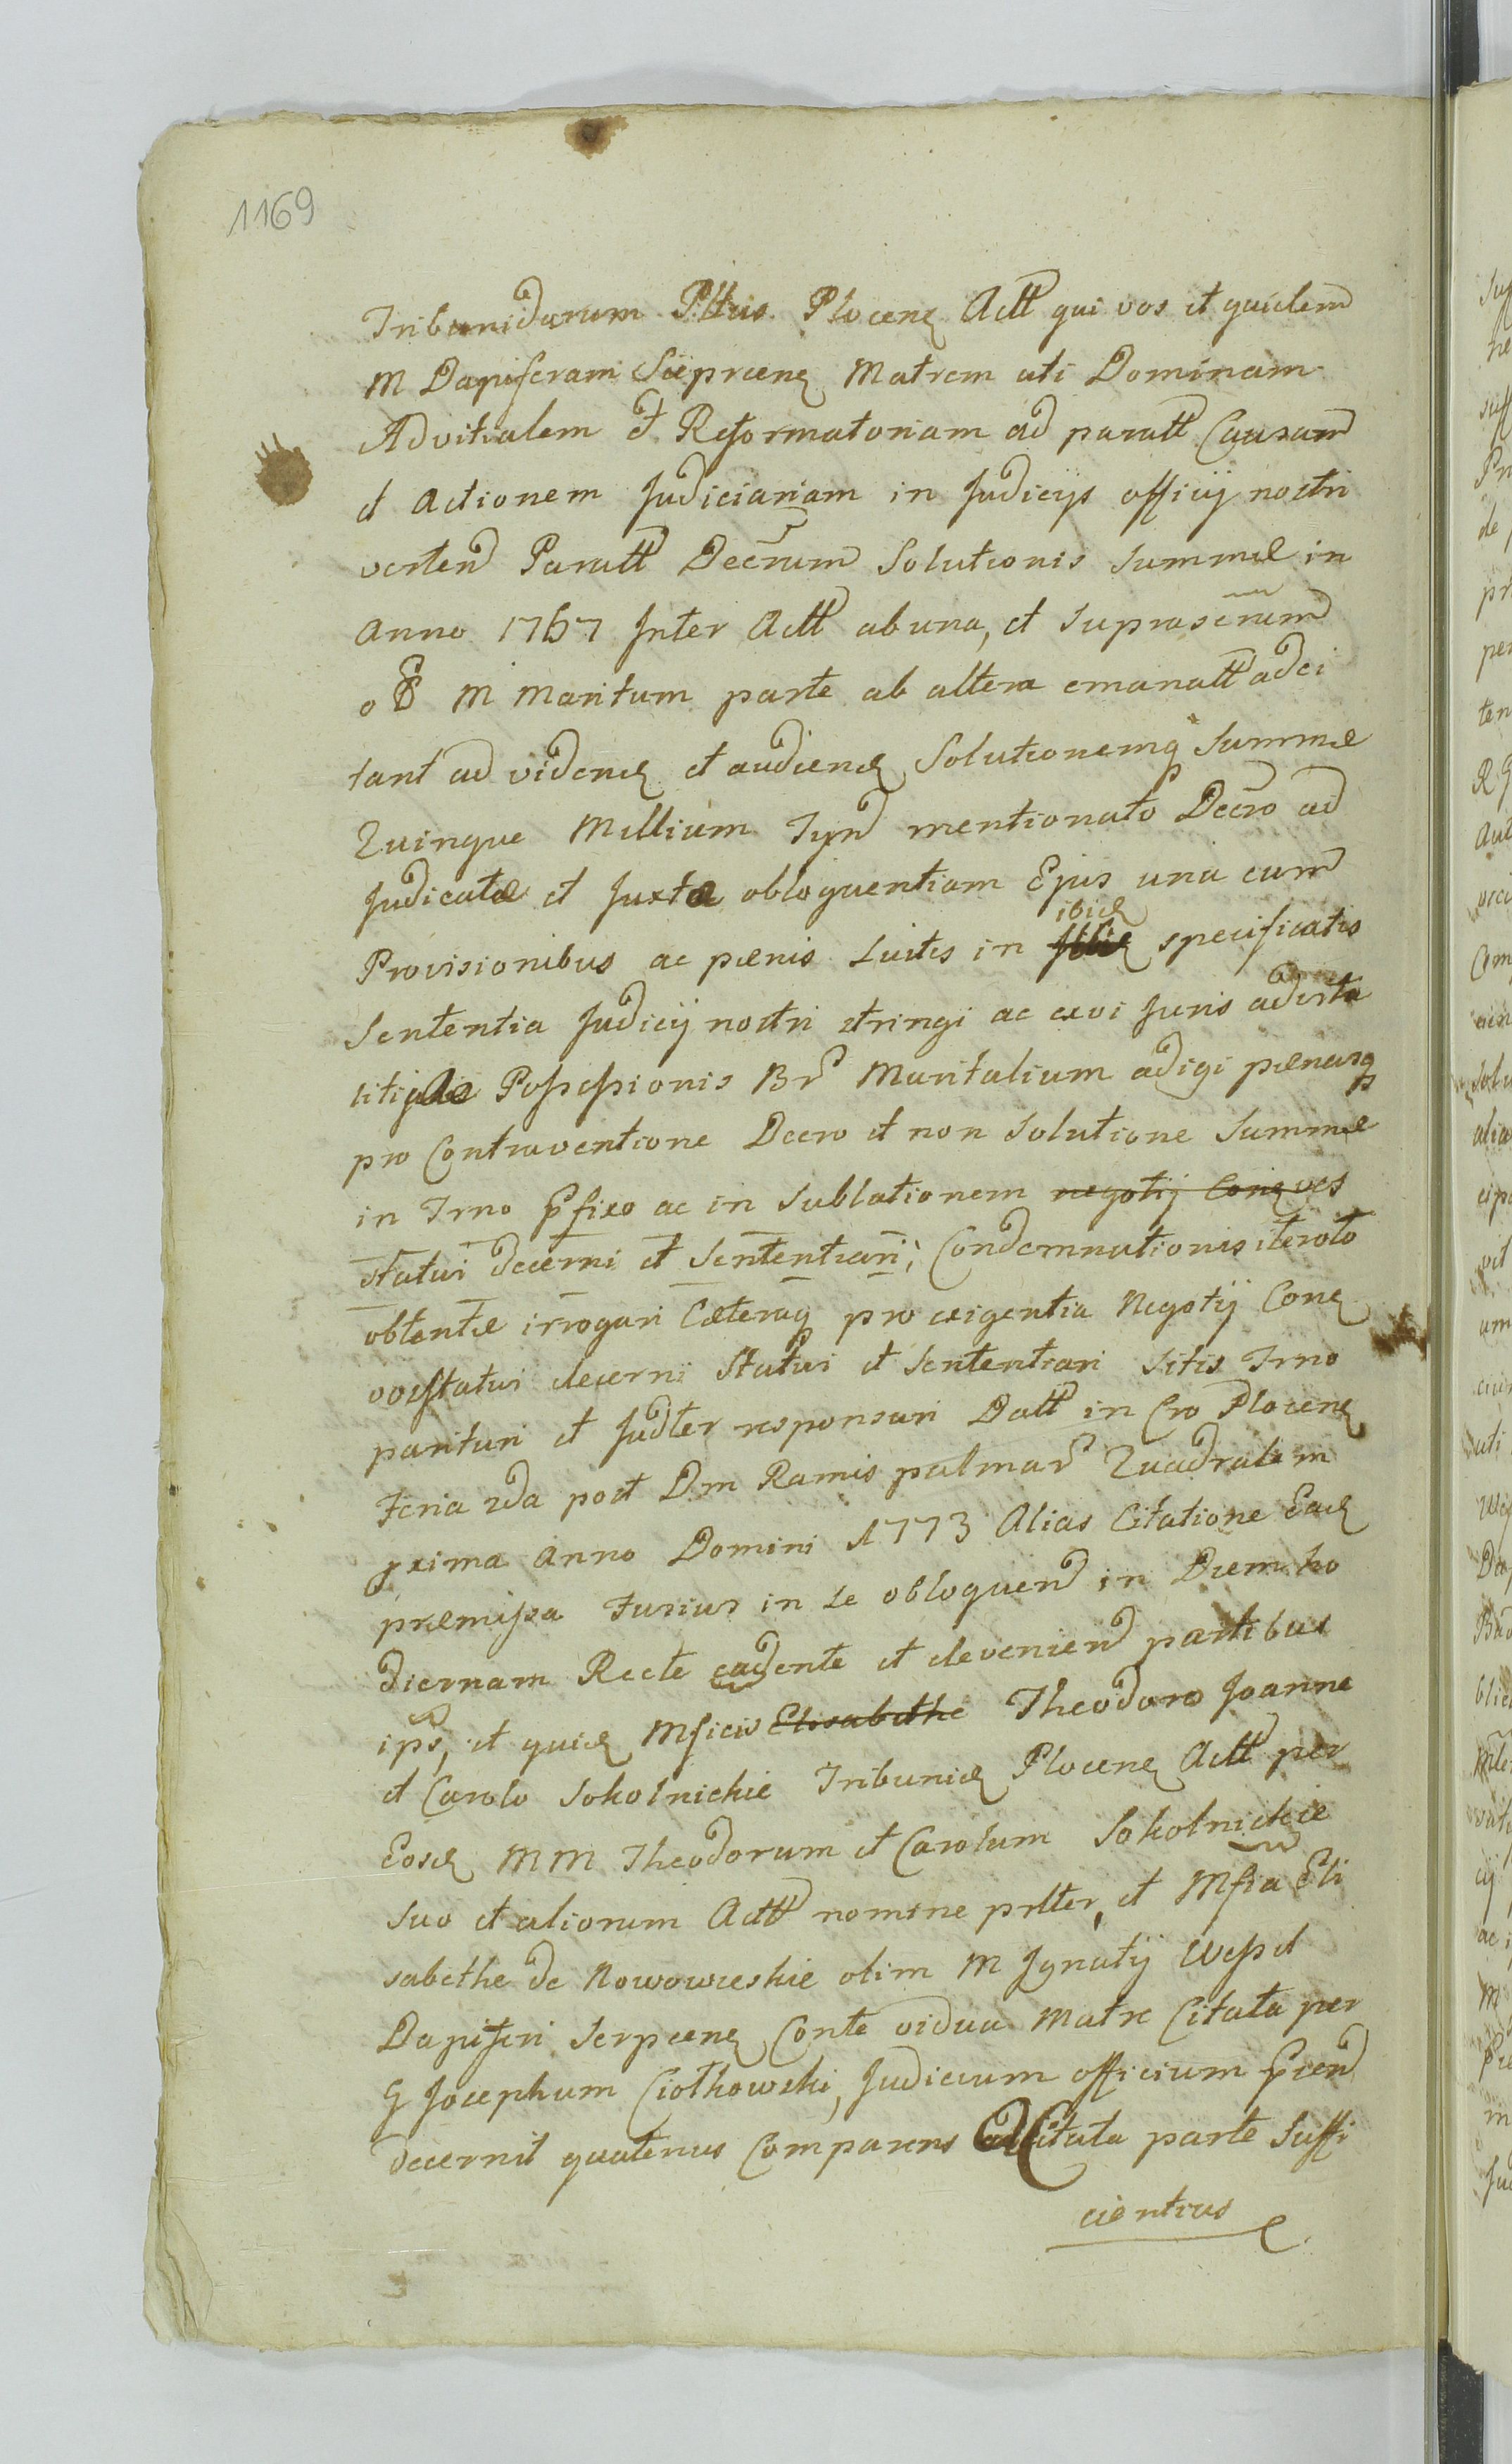 1169
Tribunidarum Pltus Plocens Actt qui vos et quidem
M Dapiferam Sieprcens Matrem uti Dominam
Advitialem et Reformatoriam ad paratt Causam
et Actionem Judiciariam in Judicijs officij nostri
verten Paratt Decrum Solutionis Summæ in
Anno 1767 Inter Actt ab una, et suprascrum
M Maritum parte ab altera emanatt adci
tant ad videnđ et audienđ Solutionemq Summæ
Quinque Millium Tyn mentionato Decro ad
Judicatæ et Juxta obloquentiam Ejus una cum
Provisionibus ac pœnis Luitis in ibid specificatis
Sententia Judicij nostri stringi ac exvi Juris
Possessionis Br Maritalium adigi pœnasq
pro Contraventione Decro et non Solutione Summæ
in Trno Pfixo ac in Sublationem negotij Cone vos
statui decerni et Sententiari; Condemnationis iterato
obtentæ irrogari Cæteraq pro exigentia Negotij Cone
vos statui decerni Statui et Sententiari Sitis Trno
parituri et Judter responsuri Datt in Cro Plocens
Feria 2da post Dm Ramis palmar Quadralem
pxima Anno Domini 1773 Alias Citatione Ead
præmissa Fusius in se obloquen in Diem ho
diernam Recte cadente et devenien partibus
ips, et quid Mficis Elisabethe Theodoro Joanne
et Carolo Sokolnickie Tribunid Plocens Actt per
Eosd MM Theodorum et Carolum Sokolnickie
suo et aliorum Actt nomine prltter, et Mfia Eli
sabethe de Nowowieskie olim M Ignatij Wessel
Dapiferi Serpcens Conte vidua Matre Citata per
G Josephum Ciołkowski, Judicium officium Psen
decernit quatenus Comparens Citata parte Suffi
cientius